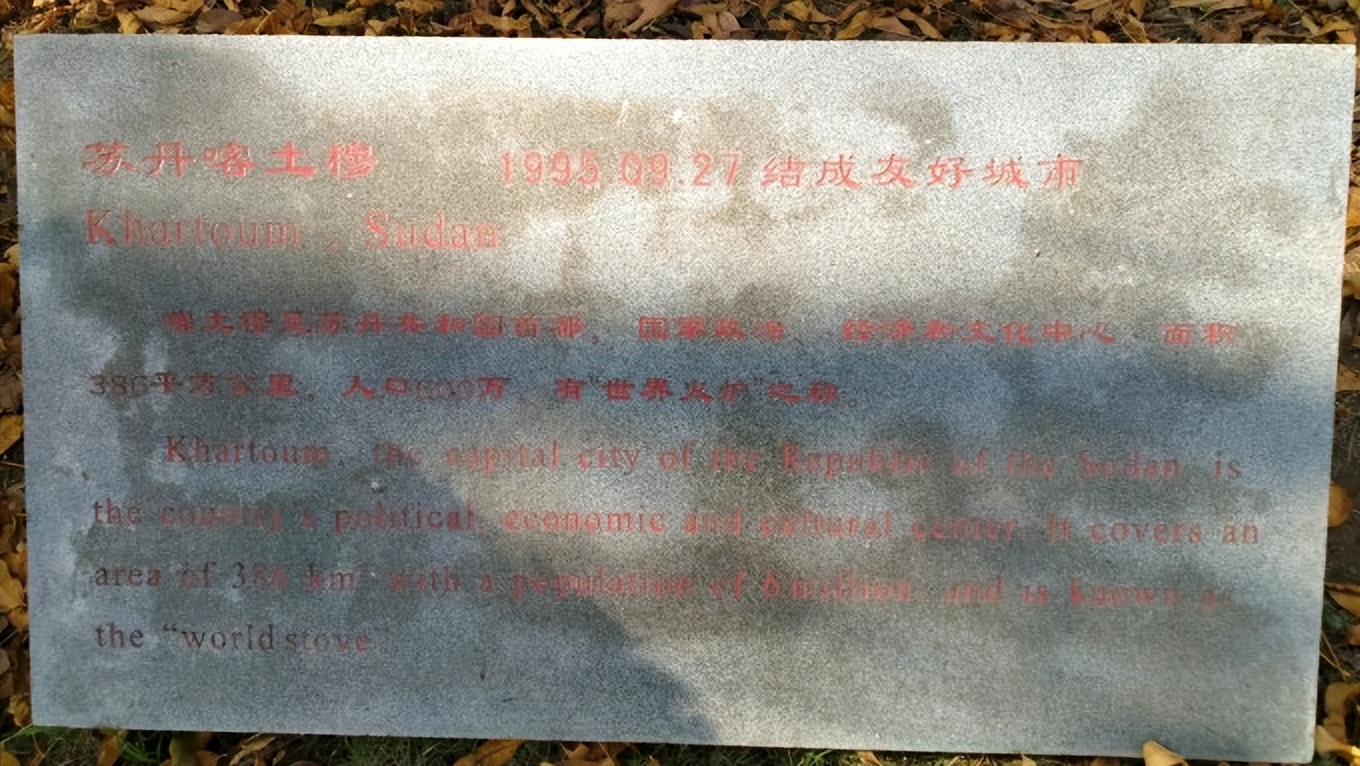 苏丹喀土穆 1995.09.27 结成友好城市
Khartoum , Sudan
喀土穆是苏丹共和国首都，国家政治、经济和文化中心，面积
386平方公里，人口600万，有“世界火炉”之称。
Khartoum, the capital city of the Republic of the Sudan, is
the country's political, economic and cultural center. It covers an
area of 386 km² with a population of 6 million, and is known as
the “world stove”